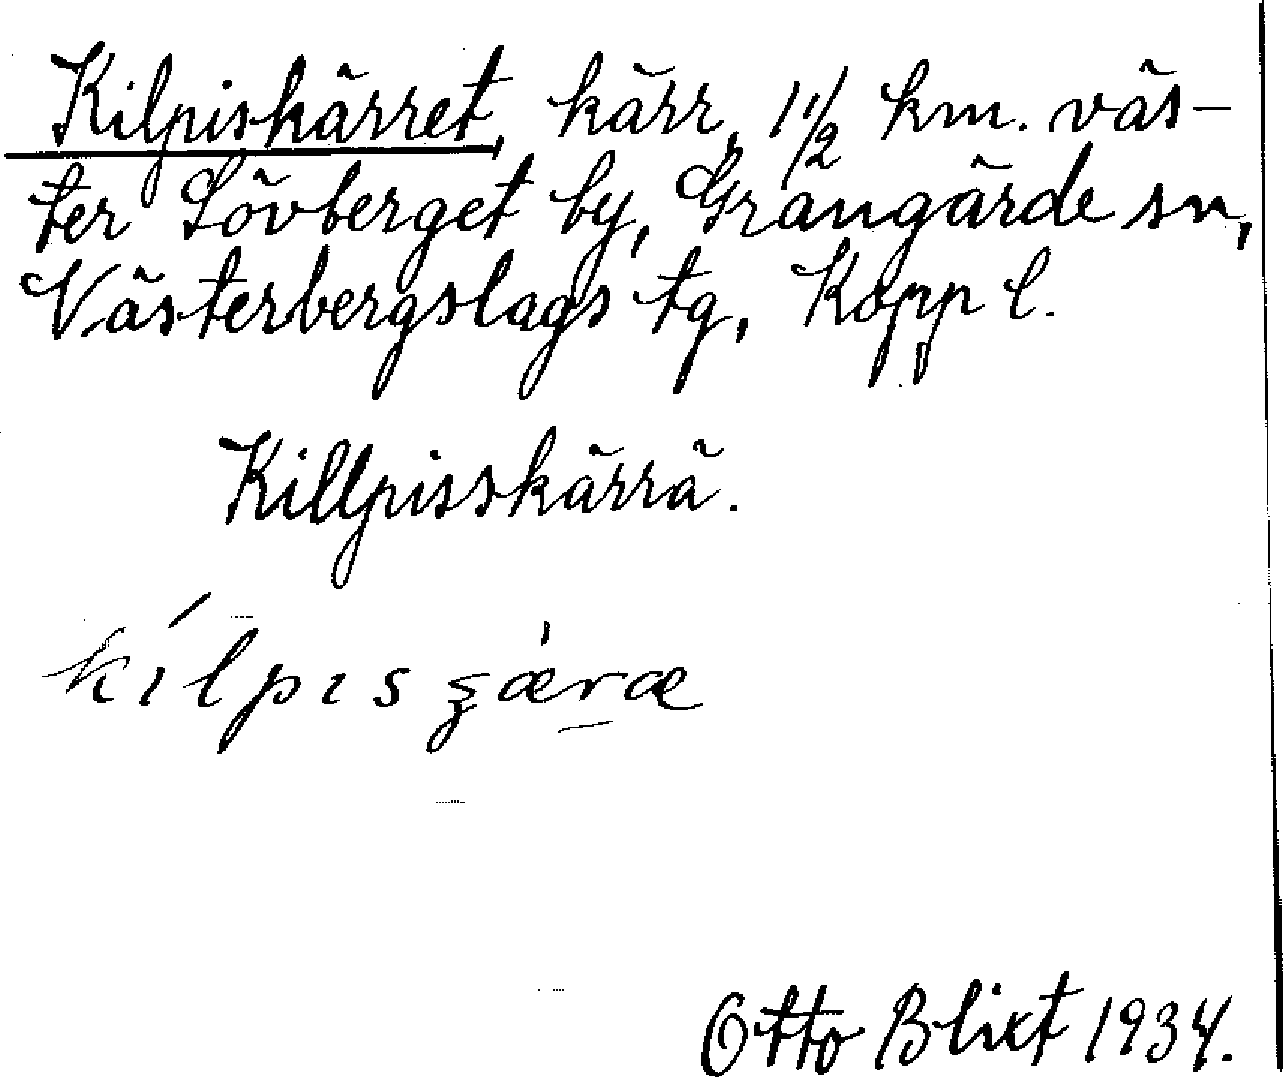 Kilpiskärret, kärr, 1 1/2 km. väs-
ter Lövberget by, Grangärde sn,
Västerbergslags tg, Kopp l.
Killpisskärrä.
kílpıs ʂǽræ
Otto Blixt 1934.